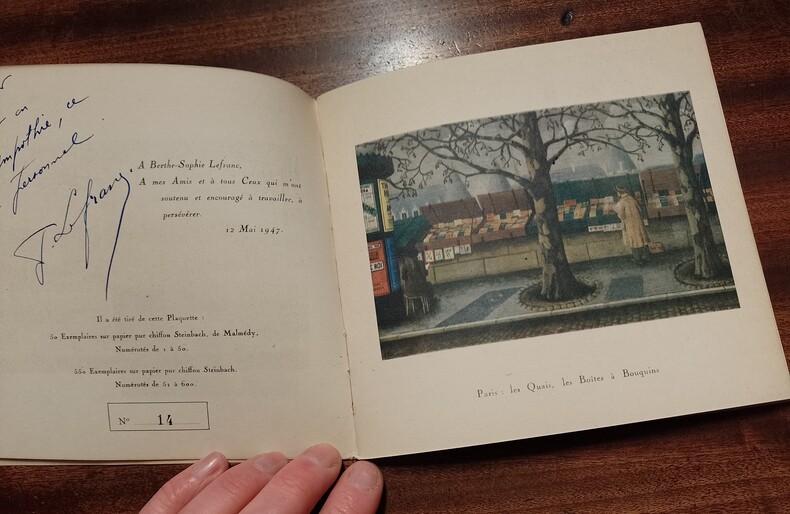 sympathie, ce
Personnel
J. Lefranc.
A Berthe-Sophie Lefranc,
A mes Amis et à tous Ceux qui m'ont
soutenu et encouragé à travailler, à
persévérer.
12 Mai 1947.
Il a été tiré de cette Plaquette :
50 Exemplaires sur papier pur chiffon Steinbach, de Malmédy,
Numérotés de 1 à 50.
550 Exemplaires sur papier pur chiffon Steinbach.
Numérotés de 51 à 600.
N° 14
Paris : les Quais, les Boîtes à Bouquins